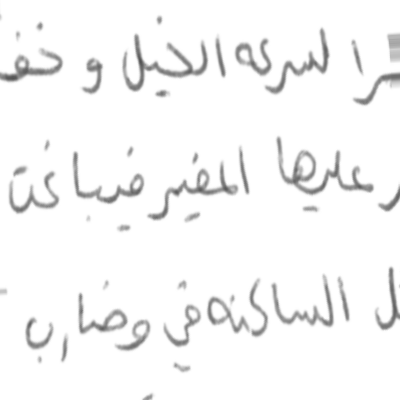 را لسرعة الخيل و خف
عليها المغير فيباغت
ل الساكنة في مضارب